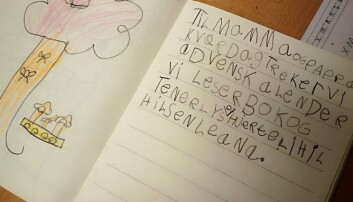 TIL MAMMA OG PAPPA
KVARDAG TREKER VI
ADVENSKALENDER
VI LESER BOK OG
TENER LYS
HILSEN LEANA.